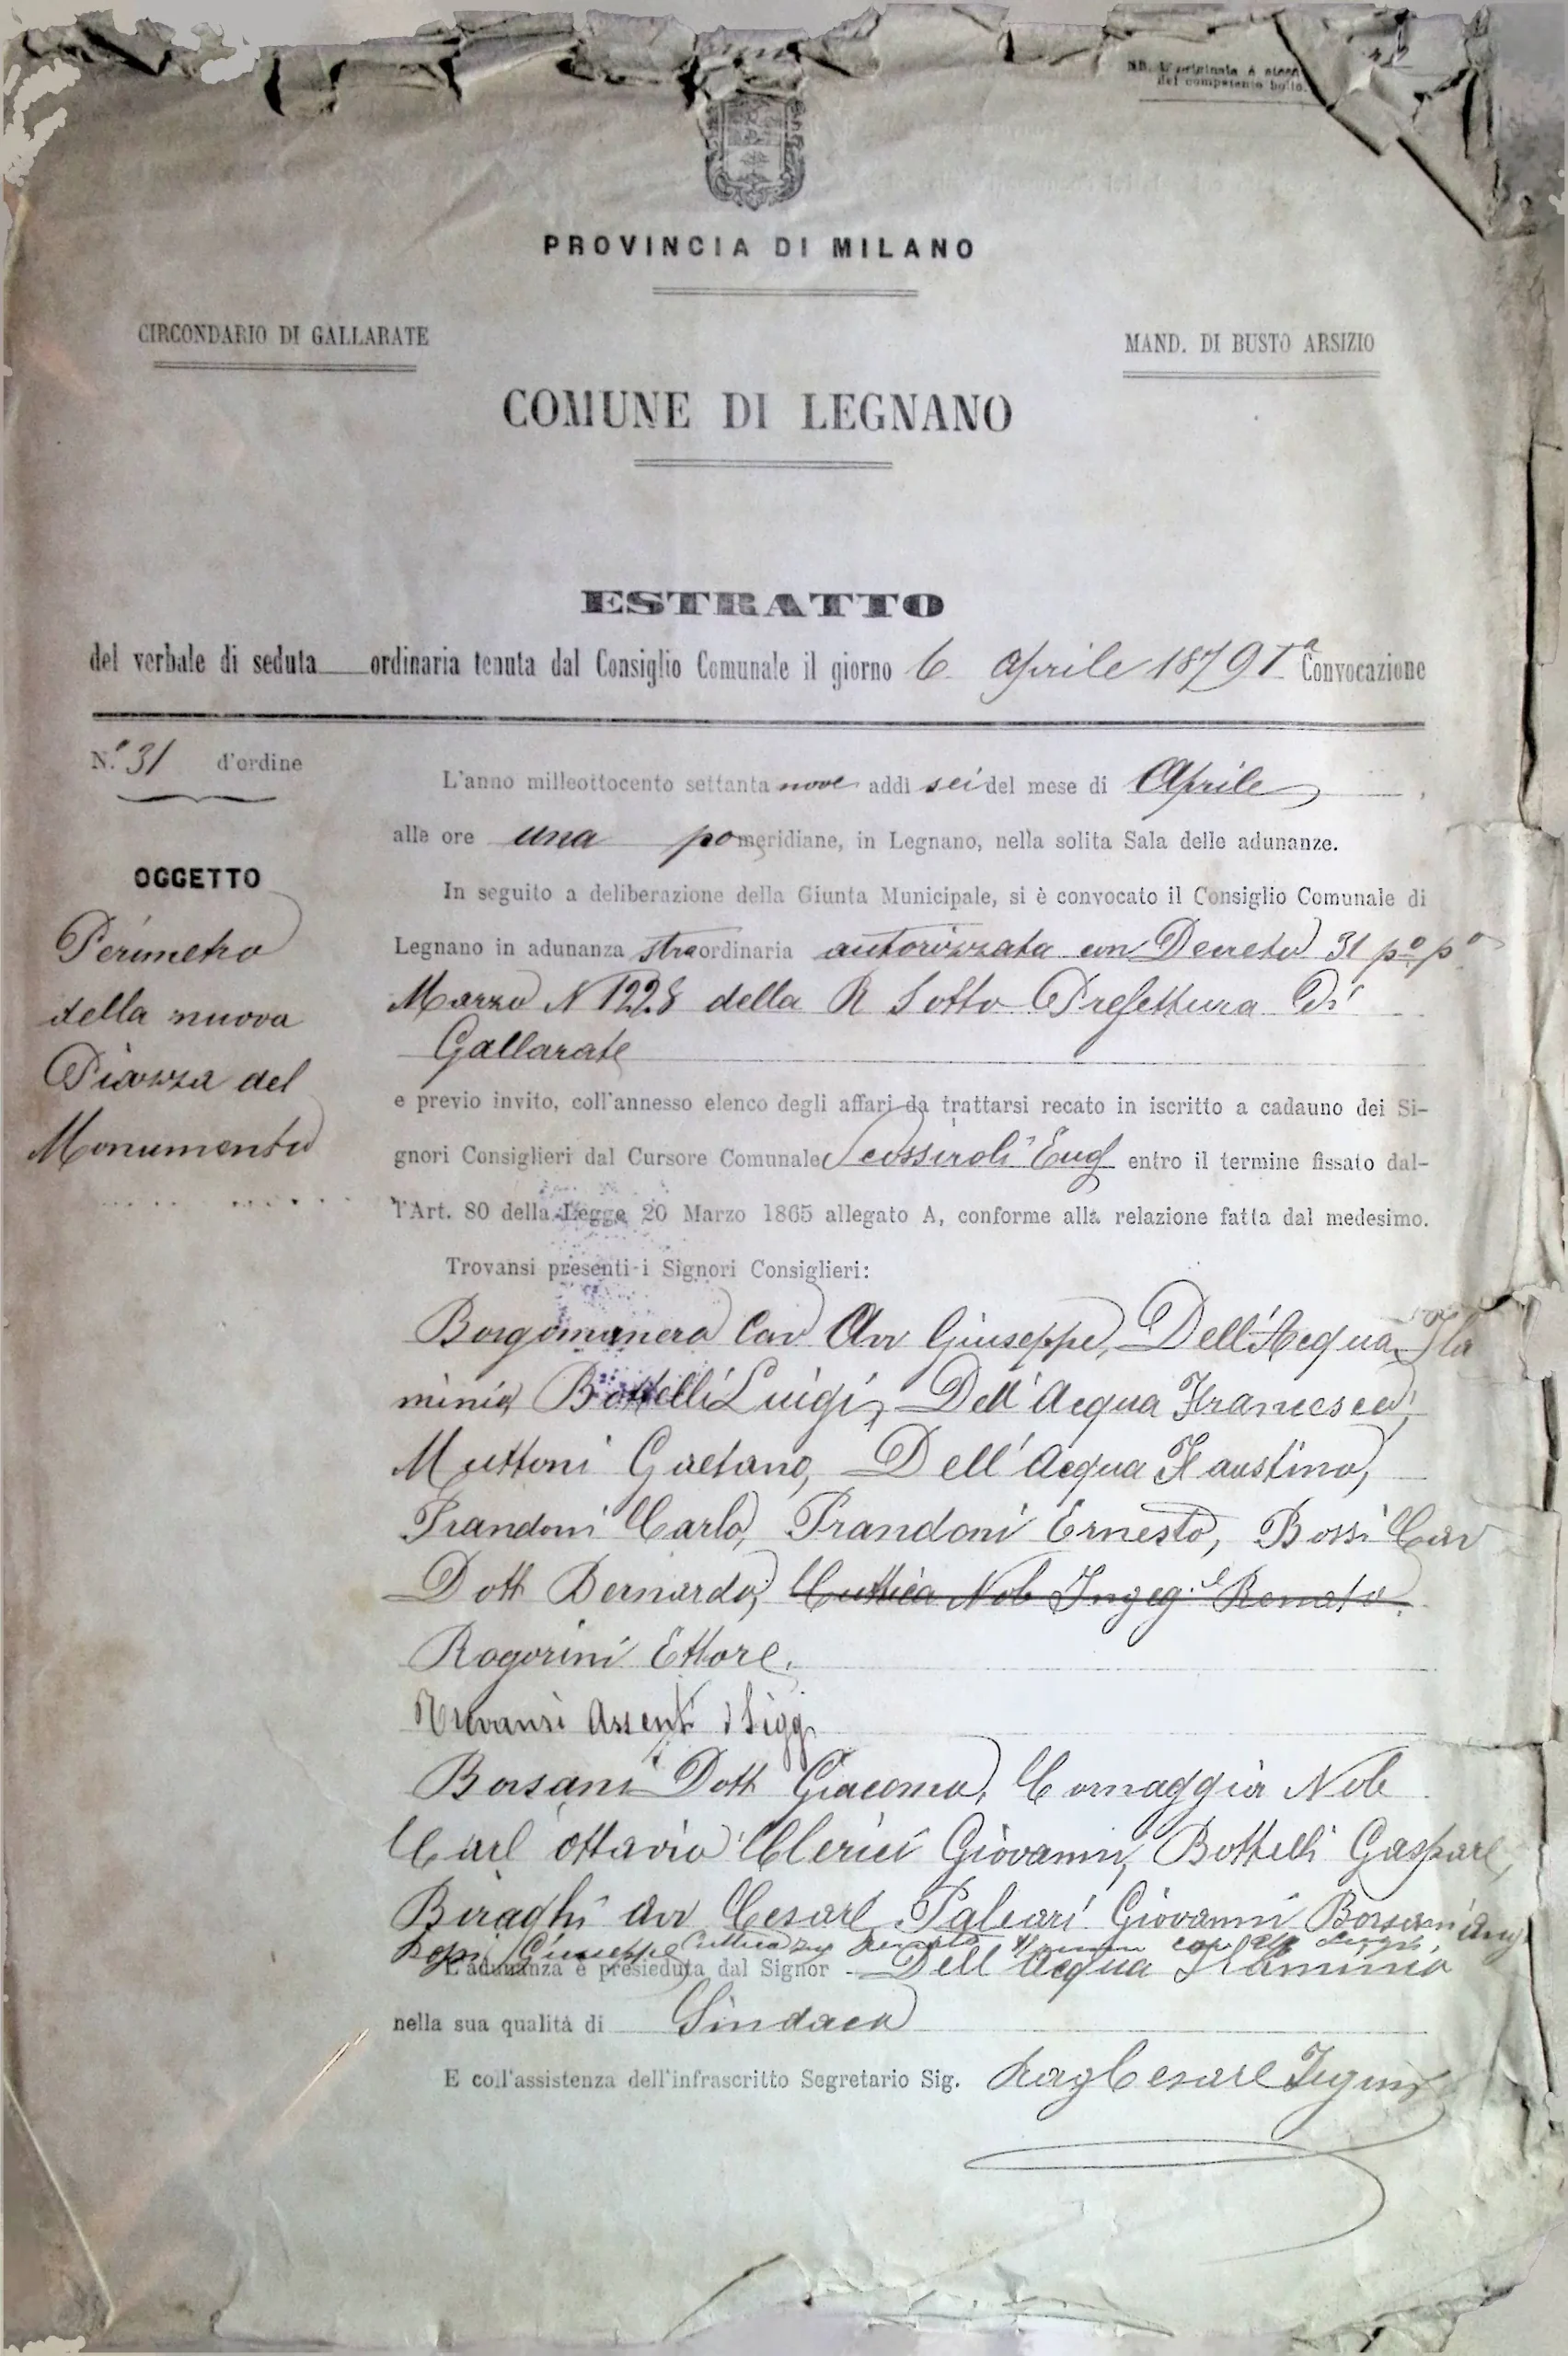 NB. L'originale è steso
del competente bollo.
PROVINCIA DI MILANO
CIRCONDARIO DI GALLARATE
MAND. DI BUSTO ARSIZIO
COMUNE DI LEGNANO
ESTRATTO
del verbale di seduta ordinaria tenuta dal Consiglio Comunale il giorno 6 Aprile 1879 Iª Convocazione
N.º 31 d'ordine
OGGETTO
Perimetro
della nuova
Piazza del
Monumento
L'anno milleottocento settanta nove addi sei del mese di Aprile
alle ore una pomeridiane, in Legnano, nella solita Sala delle adunanze.
In seguito a deliberazione della Giunta Municipale, si è convocato il Consiglio Comunale di
Legnano in adunanza straordinaria autorizzata con Decreto 31 pº pº
Marzo N 1228 della R Sotto Prefettura Di
Gallarate
e previo invito, coll'annesso elenco degli affari da trattarsi recato in iscritto a cadauno dei Si-
gnori Consiglieri dal Cursore Comunale Eug entro il termine fissato dal-
l'Art. 80 della Legge 20 Marzo 1865 allegato A, conforme alla relazione fatta dal medesimo.
Trovansi presenti i Signori Consiglieri:
Borgomanero Cav Avv Giuseppe, Dell'Acqua Fla
minio Bottelli Luigi, Dell'Acqua Francesco,
Muttoni Gaetano, Dell'Acqua Faustino,
Prandoni Carlo, Prandoni Ernesto, Bossi Cav
Dott Bernardo, Cuttica Nob Ingeg.e Renato
Rogorini Ettore.
Trovansi Assenti i Sigg
Borsani Dott Giacomo, Cornaggia Nob
Carl Ottavio Clerici Giovanni, Bottelli Gaspare,
Biraghi Avv Cesare Paleari Giovanni Borsani Ang
Giuseppe Cuttica Ing Renato
L'adunanza è presieduta dal Signor Dell'Acqua Flaminio
nella sua qualità di Sindaco
E coll'assistenza dell'infrascritto Segretario Sig. Rag Cesare